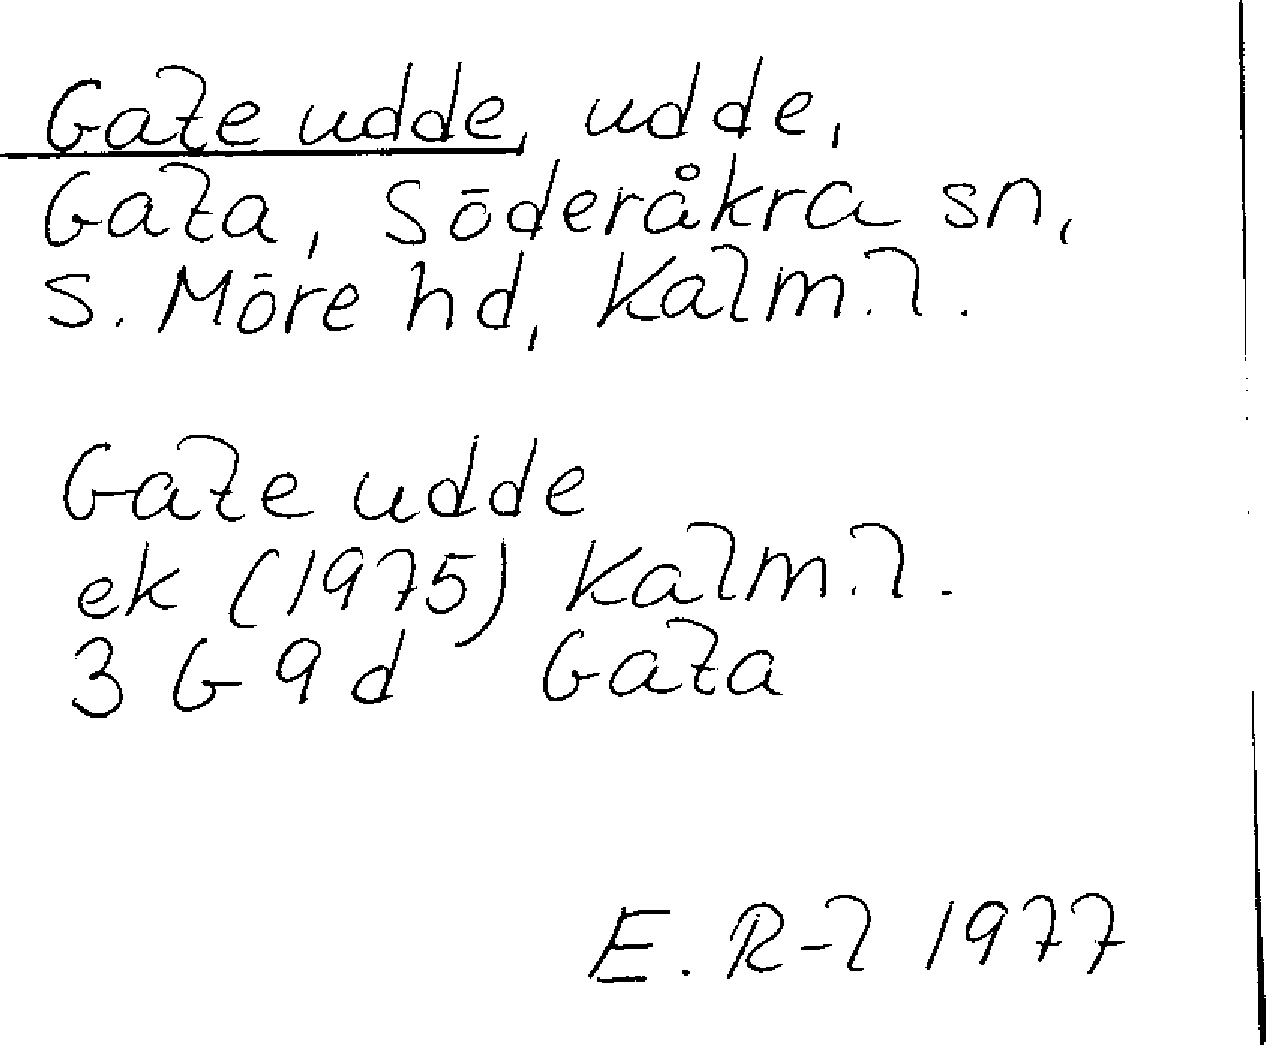 Gate udde, udde,
Gata, Söderåkra sn,
S. Möre hd, Kalm. l.
Gate udde
ek (1975) Kalm. l.
3 G 9 d Gata
E. R-l 1977